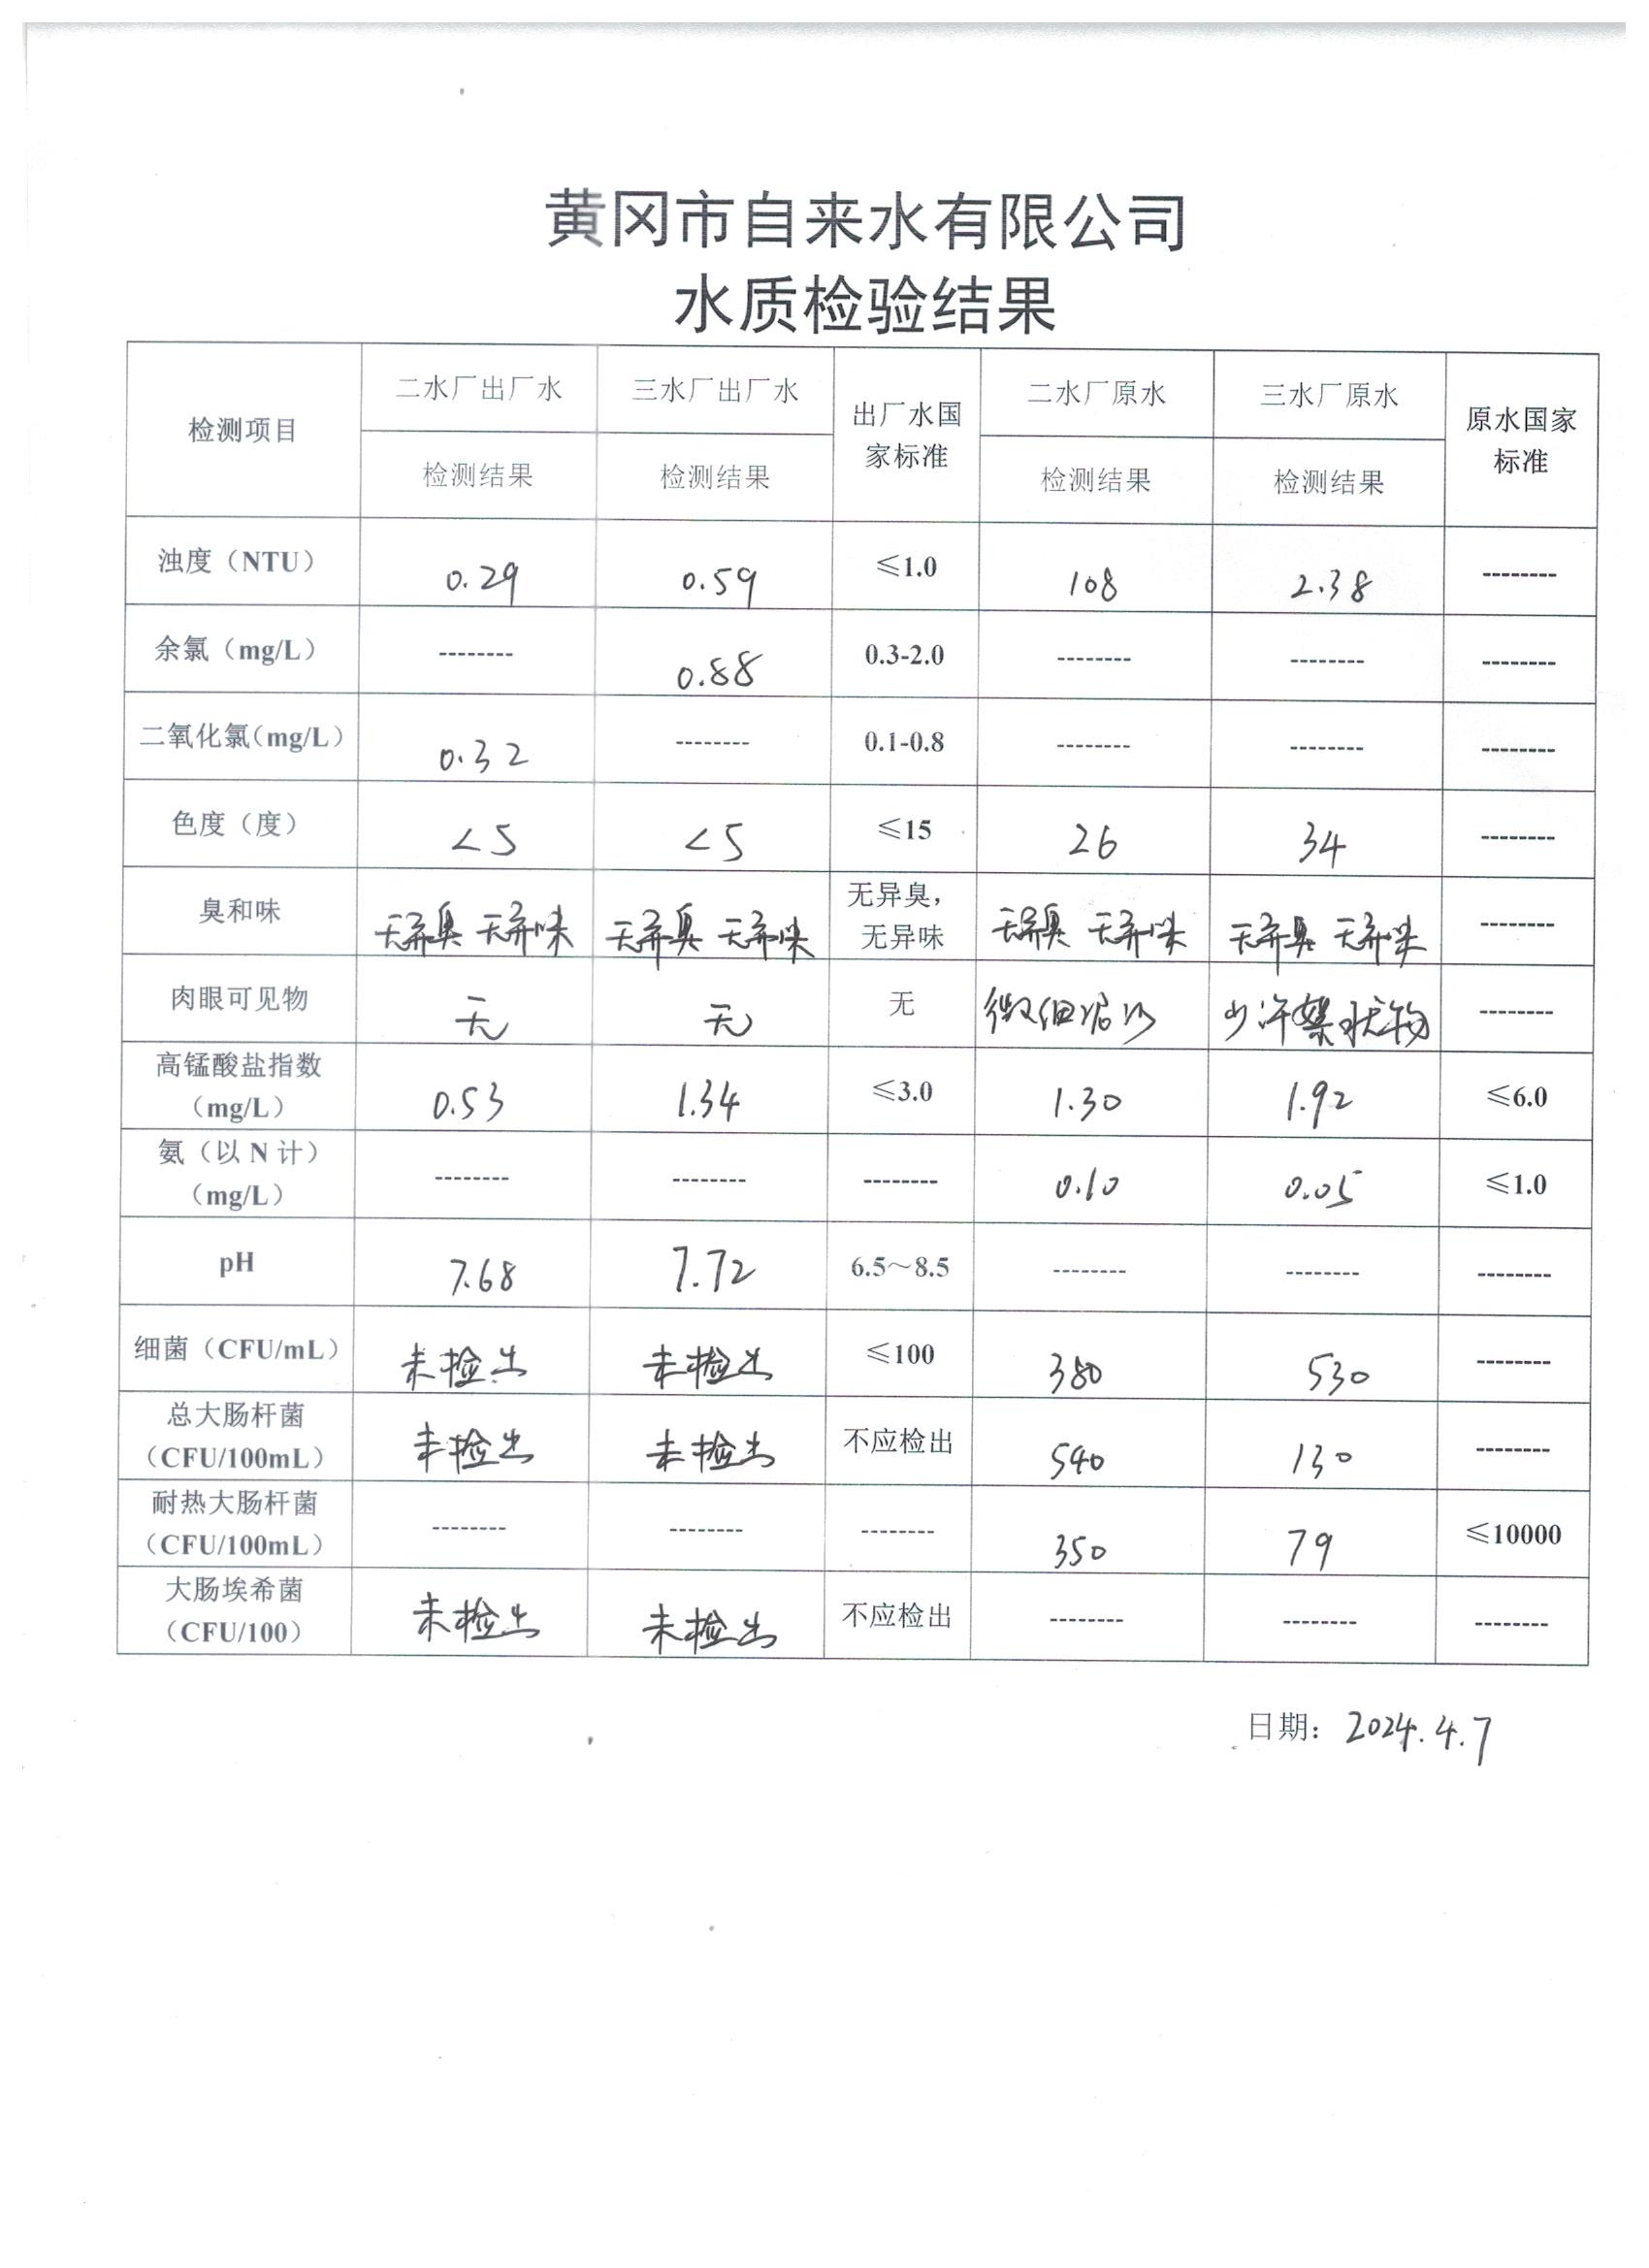 黄冈市自来水有限公司
水质检验结果
检测项目 二水厂出厂水 三水厂出厂水 出厂水国家标准 二水厂原水 三水厂原水 原水国家标准
检测结果 检测结果 检测结果 检测结果
浊度（NTU） 0.29 0.59 ≤1.0 108 2.38 --------
余氯（mg/L） -------- 0.88 0.3-2.0 -------- -------- --------
二氧化氯（mg/L） 0.32 -------- 0.1-0.8 -------- -------- --------
色度（度） <5 <5 ≤15 26 34 --------
臭和味 无异臭 无异味 无异臭 无异味 无异臭，无异味 无异臭 无异味 无异臭 无异味 --------
肉眼可见物 无 无 无 微细泥沙 少许絮状物 --------
高锰酸盐指数（mg/L） 0.53 1.34 ≤3.0 1.30 1.92 ≤6.0
氨（以 N 计）（mg/L） -------- -------- -------- 0.10 0.05 ≤1.0
pH 7.68 7.72 6.5～8.5 -------- -------- --------
细菌（CFU/mL） 未检出 未检出 ≤100 380 530 --------
总大肠杆菌（CFU/100mL） 未检出 未检出 不应检出 540 130 --------
耐热大肠杆菌（CFU/100mL） -------- -------- -------- 350 79 ≤10000
大肠埃希菌（CFU/100） 未检出 未检出 不应检出 -------- -------- --------
日期：2024.4.7